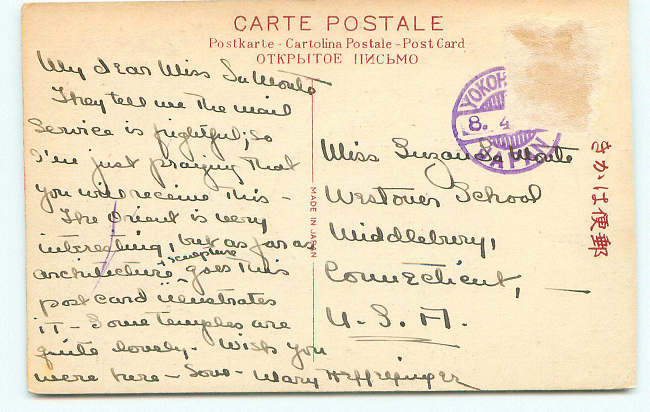 CARTE POSTALE
Postkarte - Cartolina Postale - Post Card
ОТКРЫТОЕ ПИСЬМО
My dear Miss La Monte
They tell me the mail
service is frightful; so
I'm just praying that
you will receive this -
The Orient is very
interesting, but as far as
architecture, sculpture goes this
post card illustrates
it - Some temples are
quite lovely - Wish you
were here - Mary Heffelfinger
MADE IN JAPAN
8. 4
JAPAN
Miss Suzan La Monte
Westover School
Middlebury,
Connecticut,
U.S.A.
きかは便郵